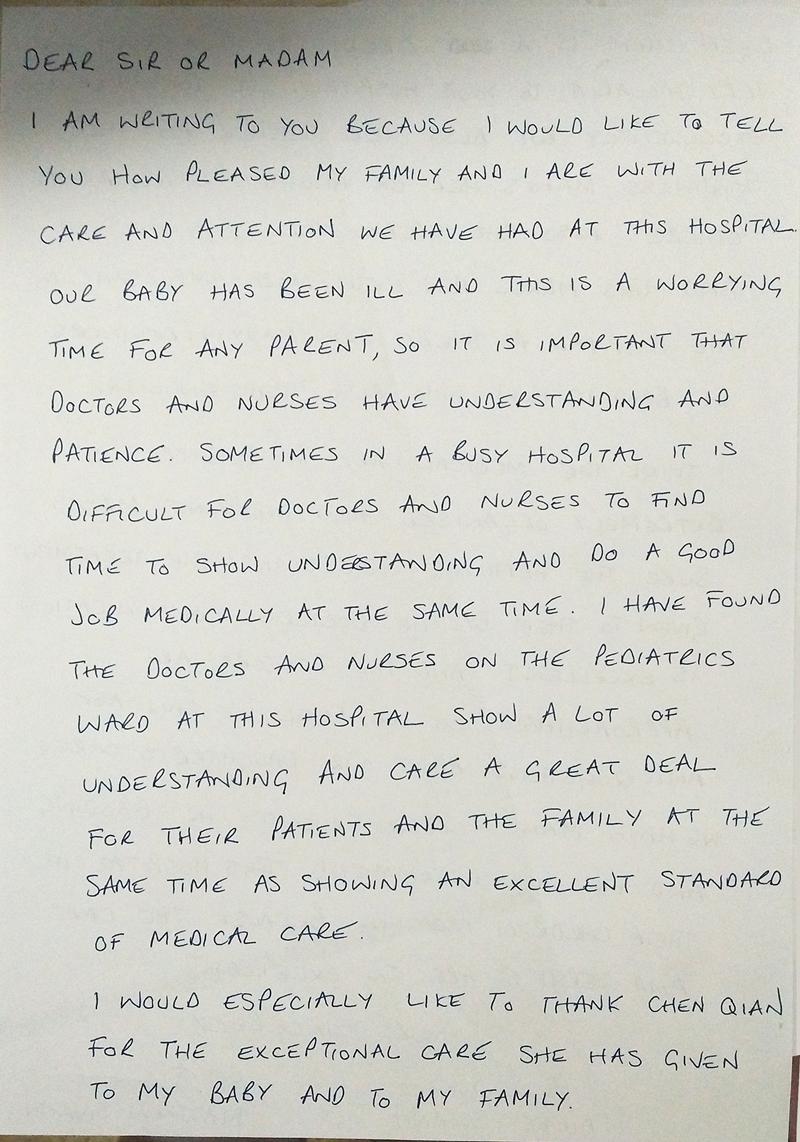 DEAR SIR OR MADAM
I AM WRITING TO YOU BECAUSE I WOULD LIKE TO TELL
YOU HOW PLEASED MY FAMILY AND I ARE WITH THE
CARE AND ATTENTION WE HAVE HAD AT THIS HOSPITAL.
OUR BABY HAS BEEN ILL AND THIS IS A WORRYING
TIME FOR ANY PARENT, SO IT IS IMPORTANT THAT
DOCTORS AND NURSES HAVE UNDERSTANDING AND
PATIENCE. SOMETIMES IN A BUSY HOSPITAL IT IS
DIFFICULT FOR DOCTORS AND NURSES TO FIND
TIME TO SHOW UNDERSTANDING AND DO A GOOD
JOB MEDICALLY AT THE SAME TIME. I HAVE FOUND
THE DOCTORS AND NURSES ON THE PEDIATRICS
WARD AT THIS HOSPITAL SHOW A LOT OF
UNDERSTANDING AND CARE A GREAT DEAL
FOR THEIR PATIENTS AND THE FAMILY AT THE
SAME TIME AS SHOWING AN EXCELLENT STANDARD
OF MEDICAL CARE.
I WOULD ESPECIALLY LIKE TO THANK CHEN QIAN
FOR THE EXCEPTIONAL CARE SHE HAS GIVEN
TO MY BABY AND TO MY FAMILY.